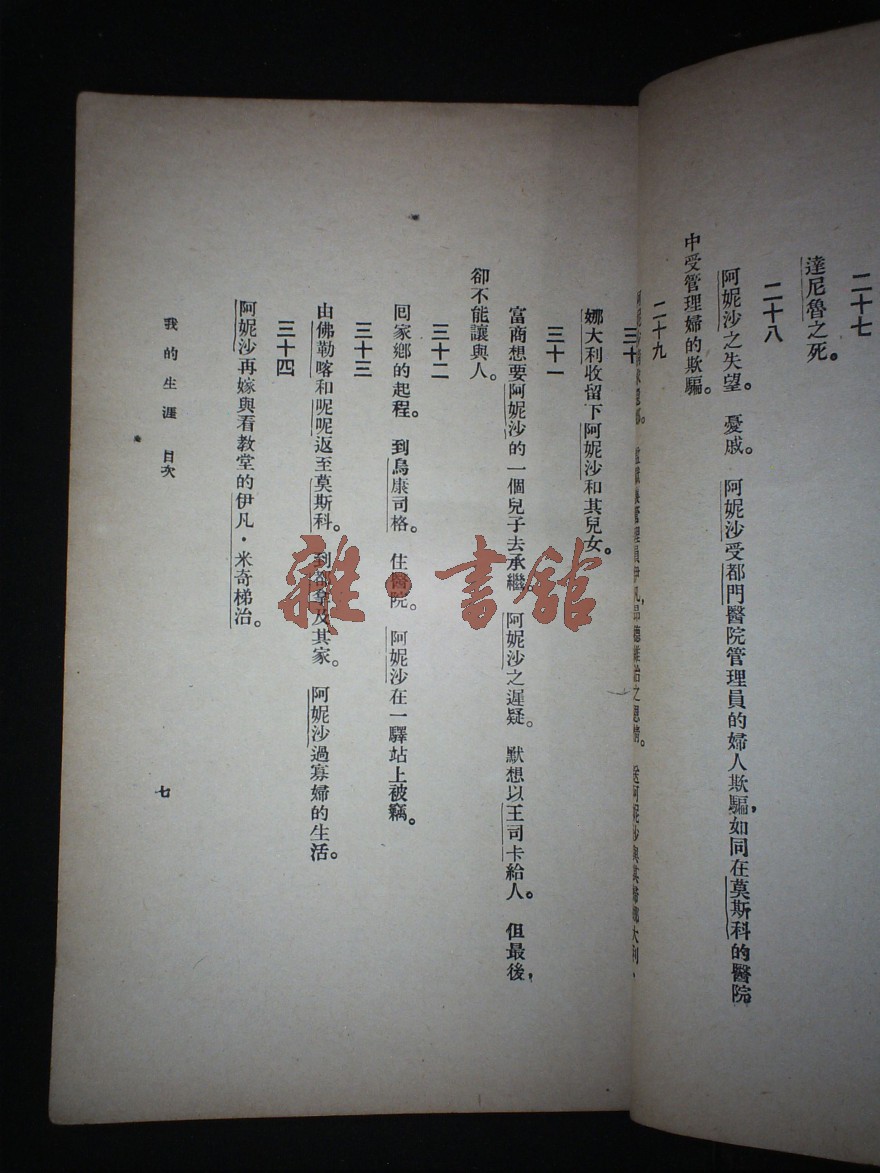 二十七
達尼魯之死。
二十八
阿妮沙之失望。　憂戚。　阿妮沙受都門醫院管理員的婦人欺騙，如同在莫斯科的醫院
中受管理婦的欺騙。
二十九
三十
娜大利收留下阿妮沙和其兒女。
三十一
富商想要阿妮沙的一個兒子去承繼。　阿妮沙之遲疑。　默想以王司卡給人。　但最後，
卻不能讓與人。
三十二
囘家鄉的起程。　到烏康司格。　住醫院。　阿妮沙在一驛站上被竊。
三十三
由佛勒喀和呢呢返至莫斯科。　到都拿及其家。　阿妮沙過寡婦的生活。
三十四
阿妮沙再嫁與看教堂的伊凡·米奇梯治。
我的生涯　目次
七
雜·書館